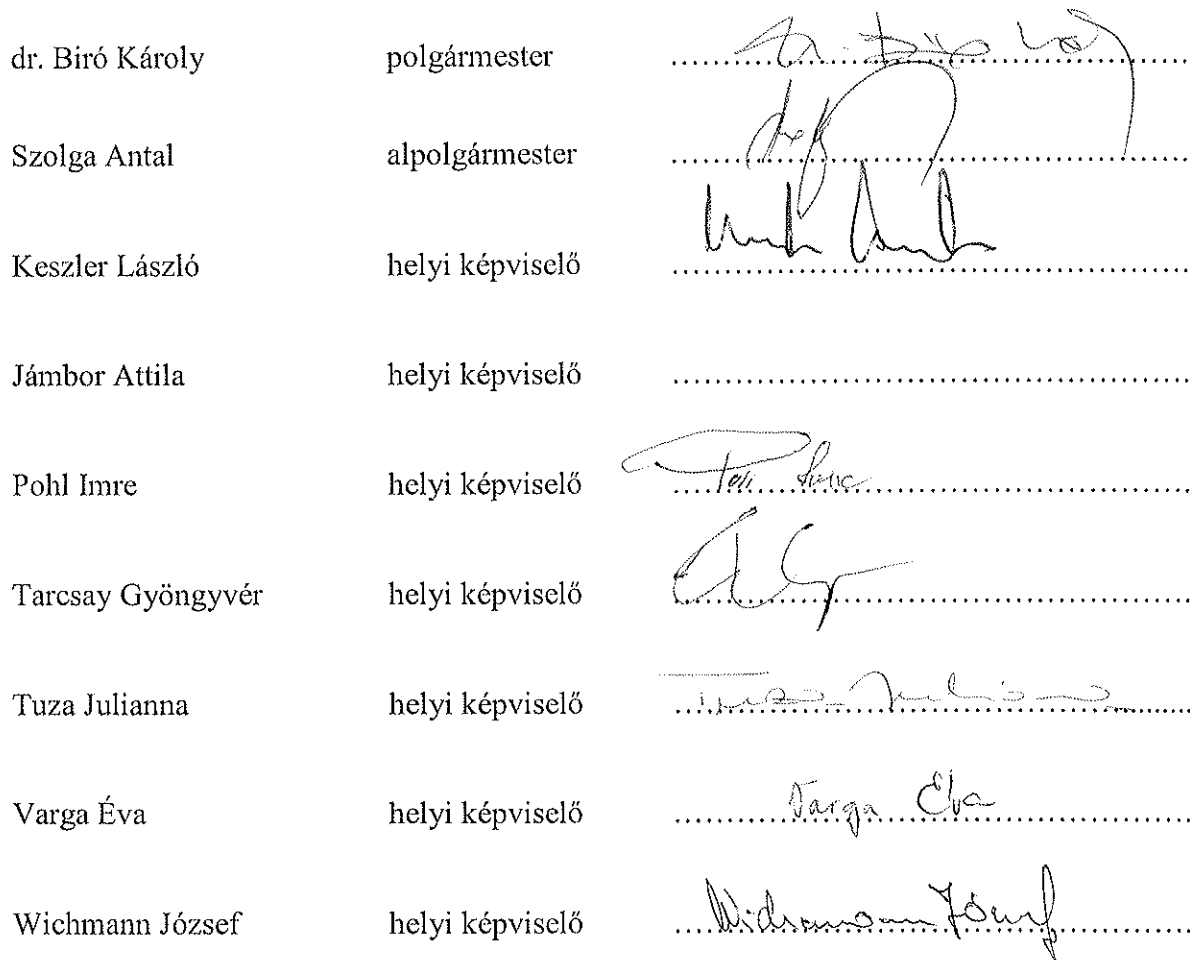 dr. Biró Károly polgármester ........ dr. Biró
Szolga Antal alpolgármester ........
Keszler László helyi képviselő ........
Jámbor Attila helyi képviselő ........
Pohl Imre helyi képviselő ........
Tarcsay Gyöngyvér helyi képviselő ........
Tuza Julianna helyi képviselő ........ Tuza Julianna
Varga Éva helyi képviselő ........ Varga Éva
Wichmann József helyi képviselő ........ Wichmann József